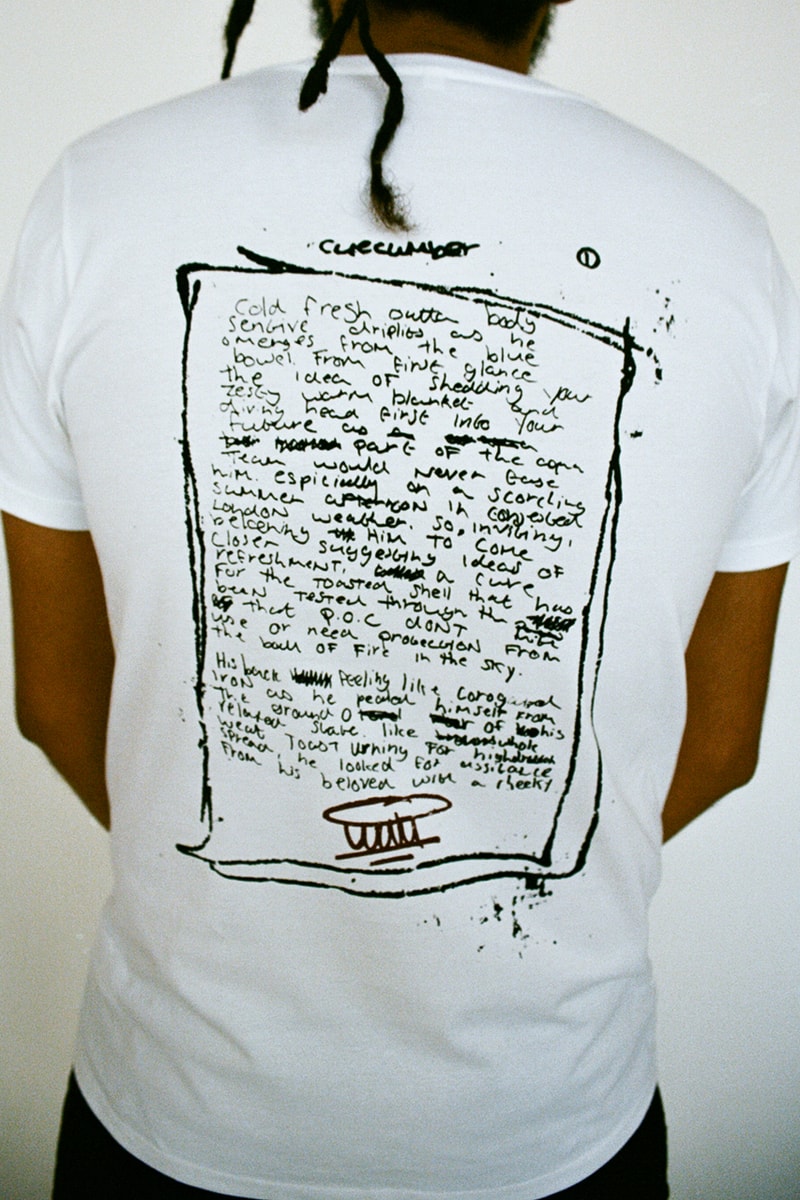 cuecumber
①
Cold fresh outta body
sencive driplits as he
omerges from the blue
bowel. From first glance
the idea of shedding your
zesty warm blanket and
diving head first into your
future as a
part of the copa
Team would never ease
him. espicially on a scorcling
summer afternoon in congested
London weather. So, inviting,
beckening Him to come
closer suggesting ideas of
refreshment, a cure
for the toasted shell that has
been tested through the
that P.O.C dont
use or need protecion from
the ball of fire in the sky.
His back feeling like Corogated
iron as he pealed himself from
the ground of his
relaxed state. like whole
weat Toast urning for
spread, he looked for assitance
from his beloved with a cheeky